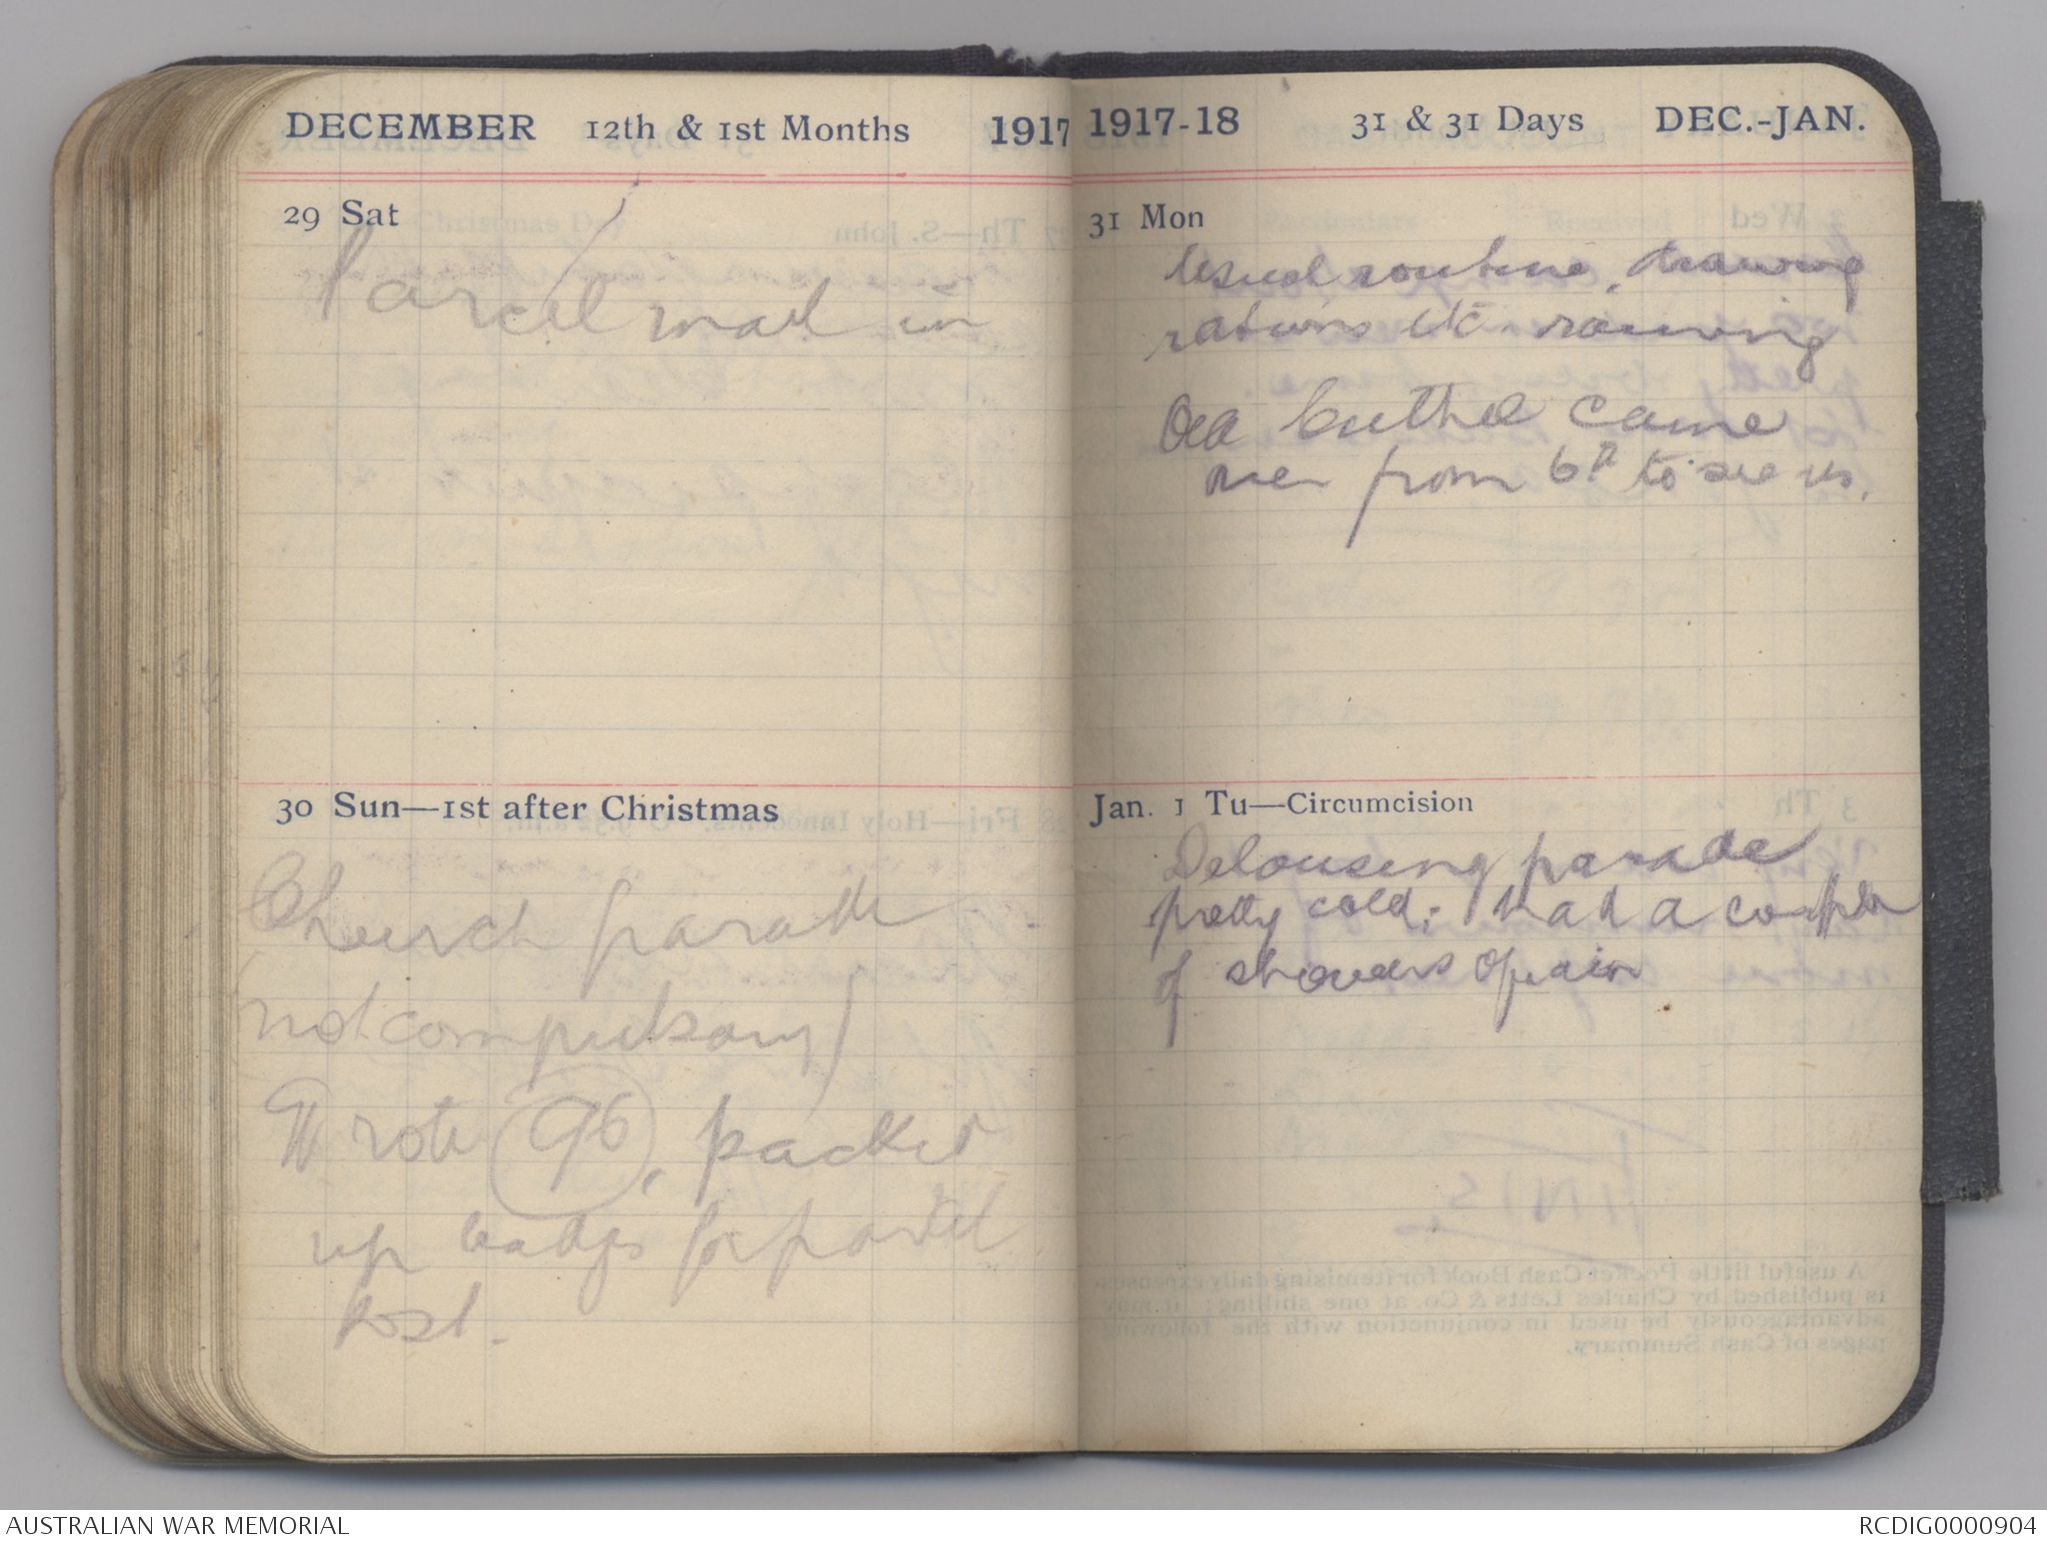 DECEMBER 12th & 1st Months 1917
29 Sat
Parcel mail in
30 Sun—1st after Christmas
Church parade
not compulsory)
Wrote 96, packed
up badges for parcel
post.
1917-18 31 & 31 Days DEC.-JAN.
31 Mon
Usual routine, drawing
rations etc. raining
Old came
over from 6th to see us.
Jan. 1 Tu—Circumcision
Delousing parade
pretty cold; had a couple
of showers of rain
AUSTRALIAN WAR MEMORIAL
RCDIG0000904